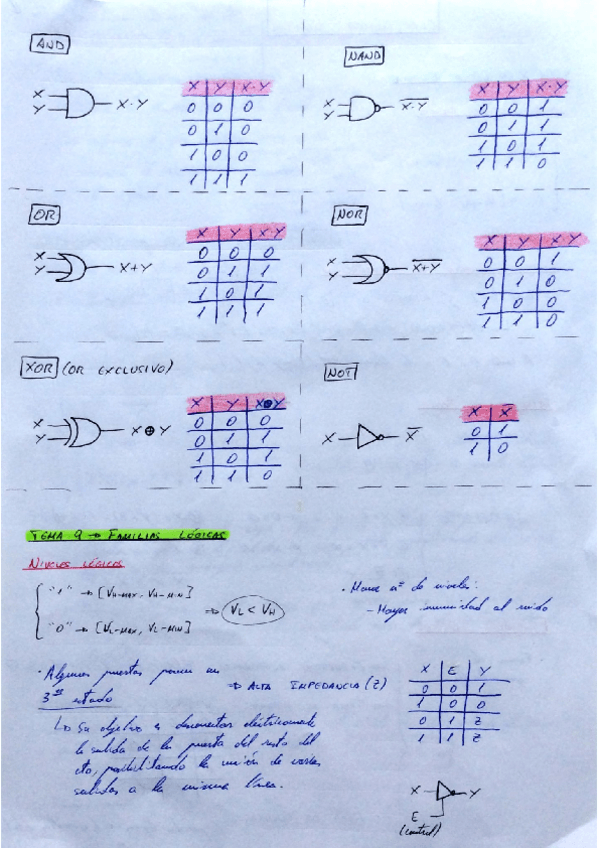 AND
X
Y
X·Y
X Y X·Y
0 0 0
0 1 0
1 0 0
1 1 1
NAND
X
Y
X·Y
X Y X·Y
0 0 1
0 1 1
1 0 1
1 1 0
OR
X
Y
X+Y
X Y X·Y
0 0 0
0 1 1
1 0 1
1 1 1
NOR
X
Y
X+Y
X Y X·Y
0 0 1
0 1 0
1 0 0
1 1 0
XOR (OR EXCLUSIVO)
X
Y
X ⊕ Y
X Y X⊕Y
0 0 0
0 1 1
1 0 1
1 1 0
NOT
X X̅
X X̅
0 1
1 0
TEMA 9 → FAMILIAS LÓGICAS
NIVELES LÓGICOS
"1" → [VH-MAX, VH-MIN]
"0" → [VL-MAX, VL-MIN]
⇒ VL < VH
· Menor nº de niveles:
- Mayor inmunidad al ruido
· Algunas puertas poseen un
3er estado
⇒ ALTA IMPEDANCIA (Z)
Lo su objetivo es desconectar eléctricamente
la salida de la puerta del resto del
cto, posibilitando la unión de varias
salidas a la misma línea.
X E Y
0 0 1
1 0 0
0 1 Z
1 1 Z
X Y
E
(control)